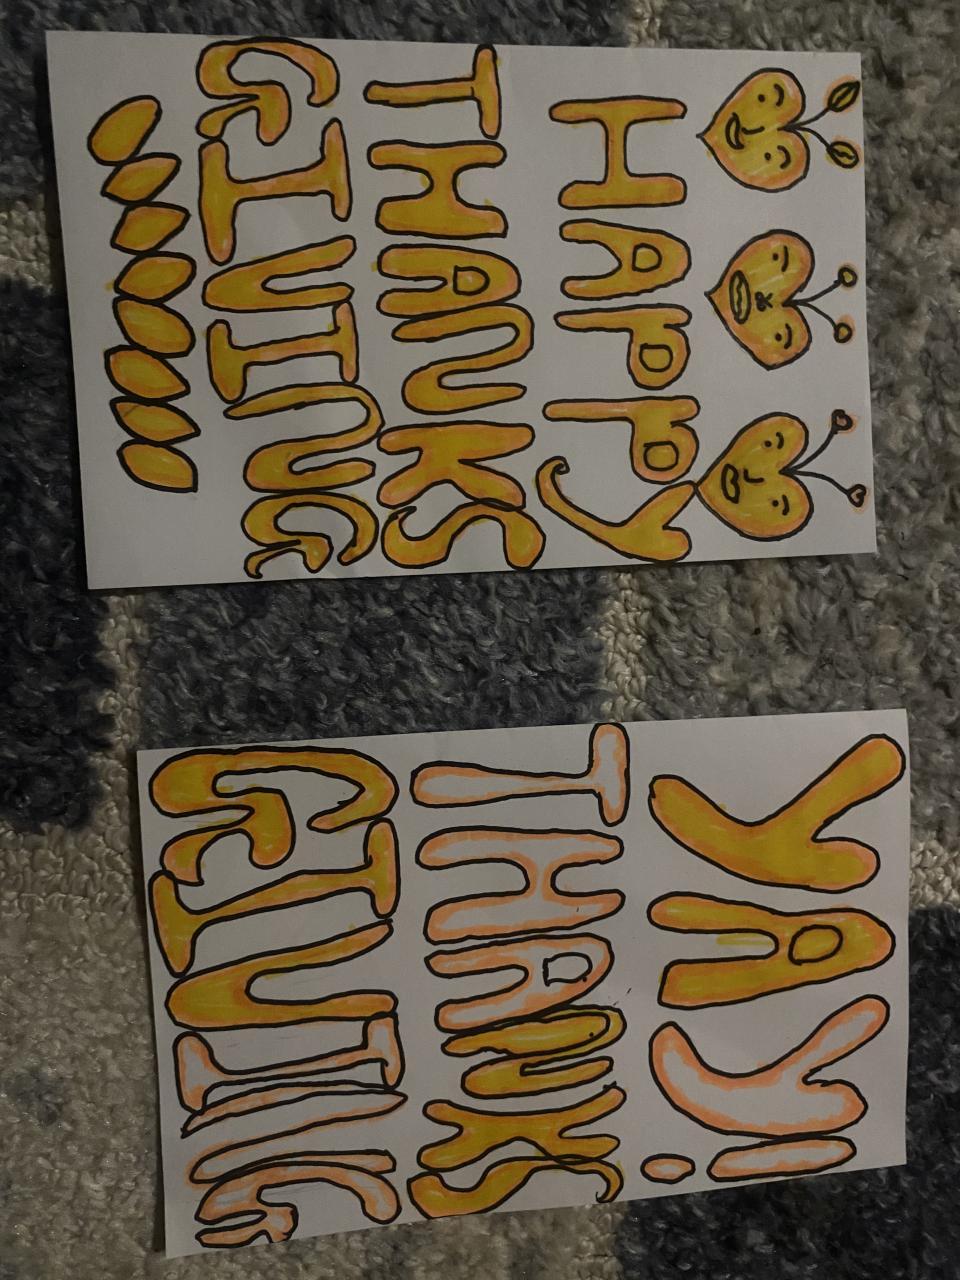 HAPPY
THANKS
GIVING
YAY!
THANKS
GIVING